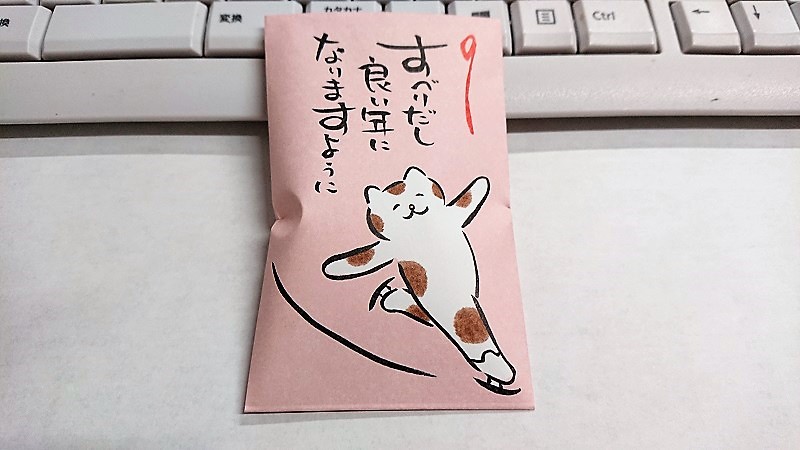 すべりだし
良い年に
なりますように
変換
カタカナ
Ctrl
←
↓